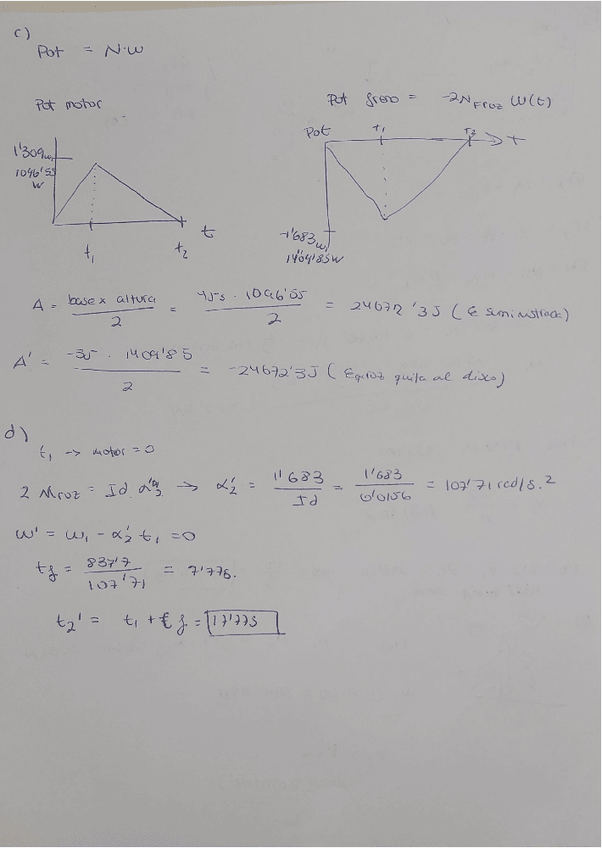 c)
Pot = N·w
Pot motor
Pot freno = -2N Froz W(t)
1'309w,
1096'55
W
t₁
t₂
t
Pot
T₁
T₂
T
-1'683w,
1404'85W
A = base x altura / 2 = 45s · 1096'55 / 2 = 24672'3J (E suministrada)
A' = -35 · 1409'85 / 2 = -24672'3J (E froz quita al disco)
d)
t₁ -> motor = 0
2 Mroz = Id α'₂ -> α'₂ = 1'683 / Id = 1'683 / 0'0156 = 107'71 rad/s.2
w' = w₁ - α'₂ t₁ = 0
tf = 837'7 / 107'71 = 7'77s.
t₂' = t₁ + t f = 17'77s